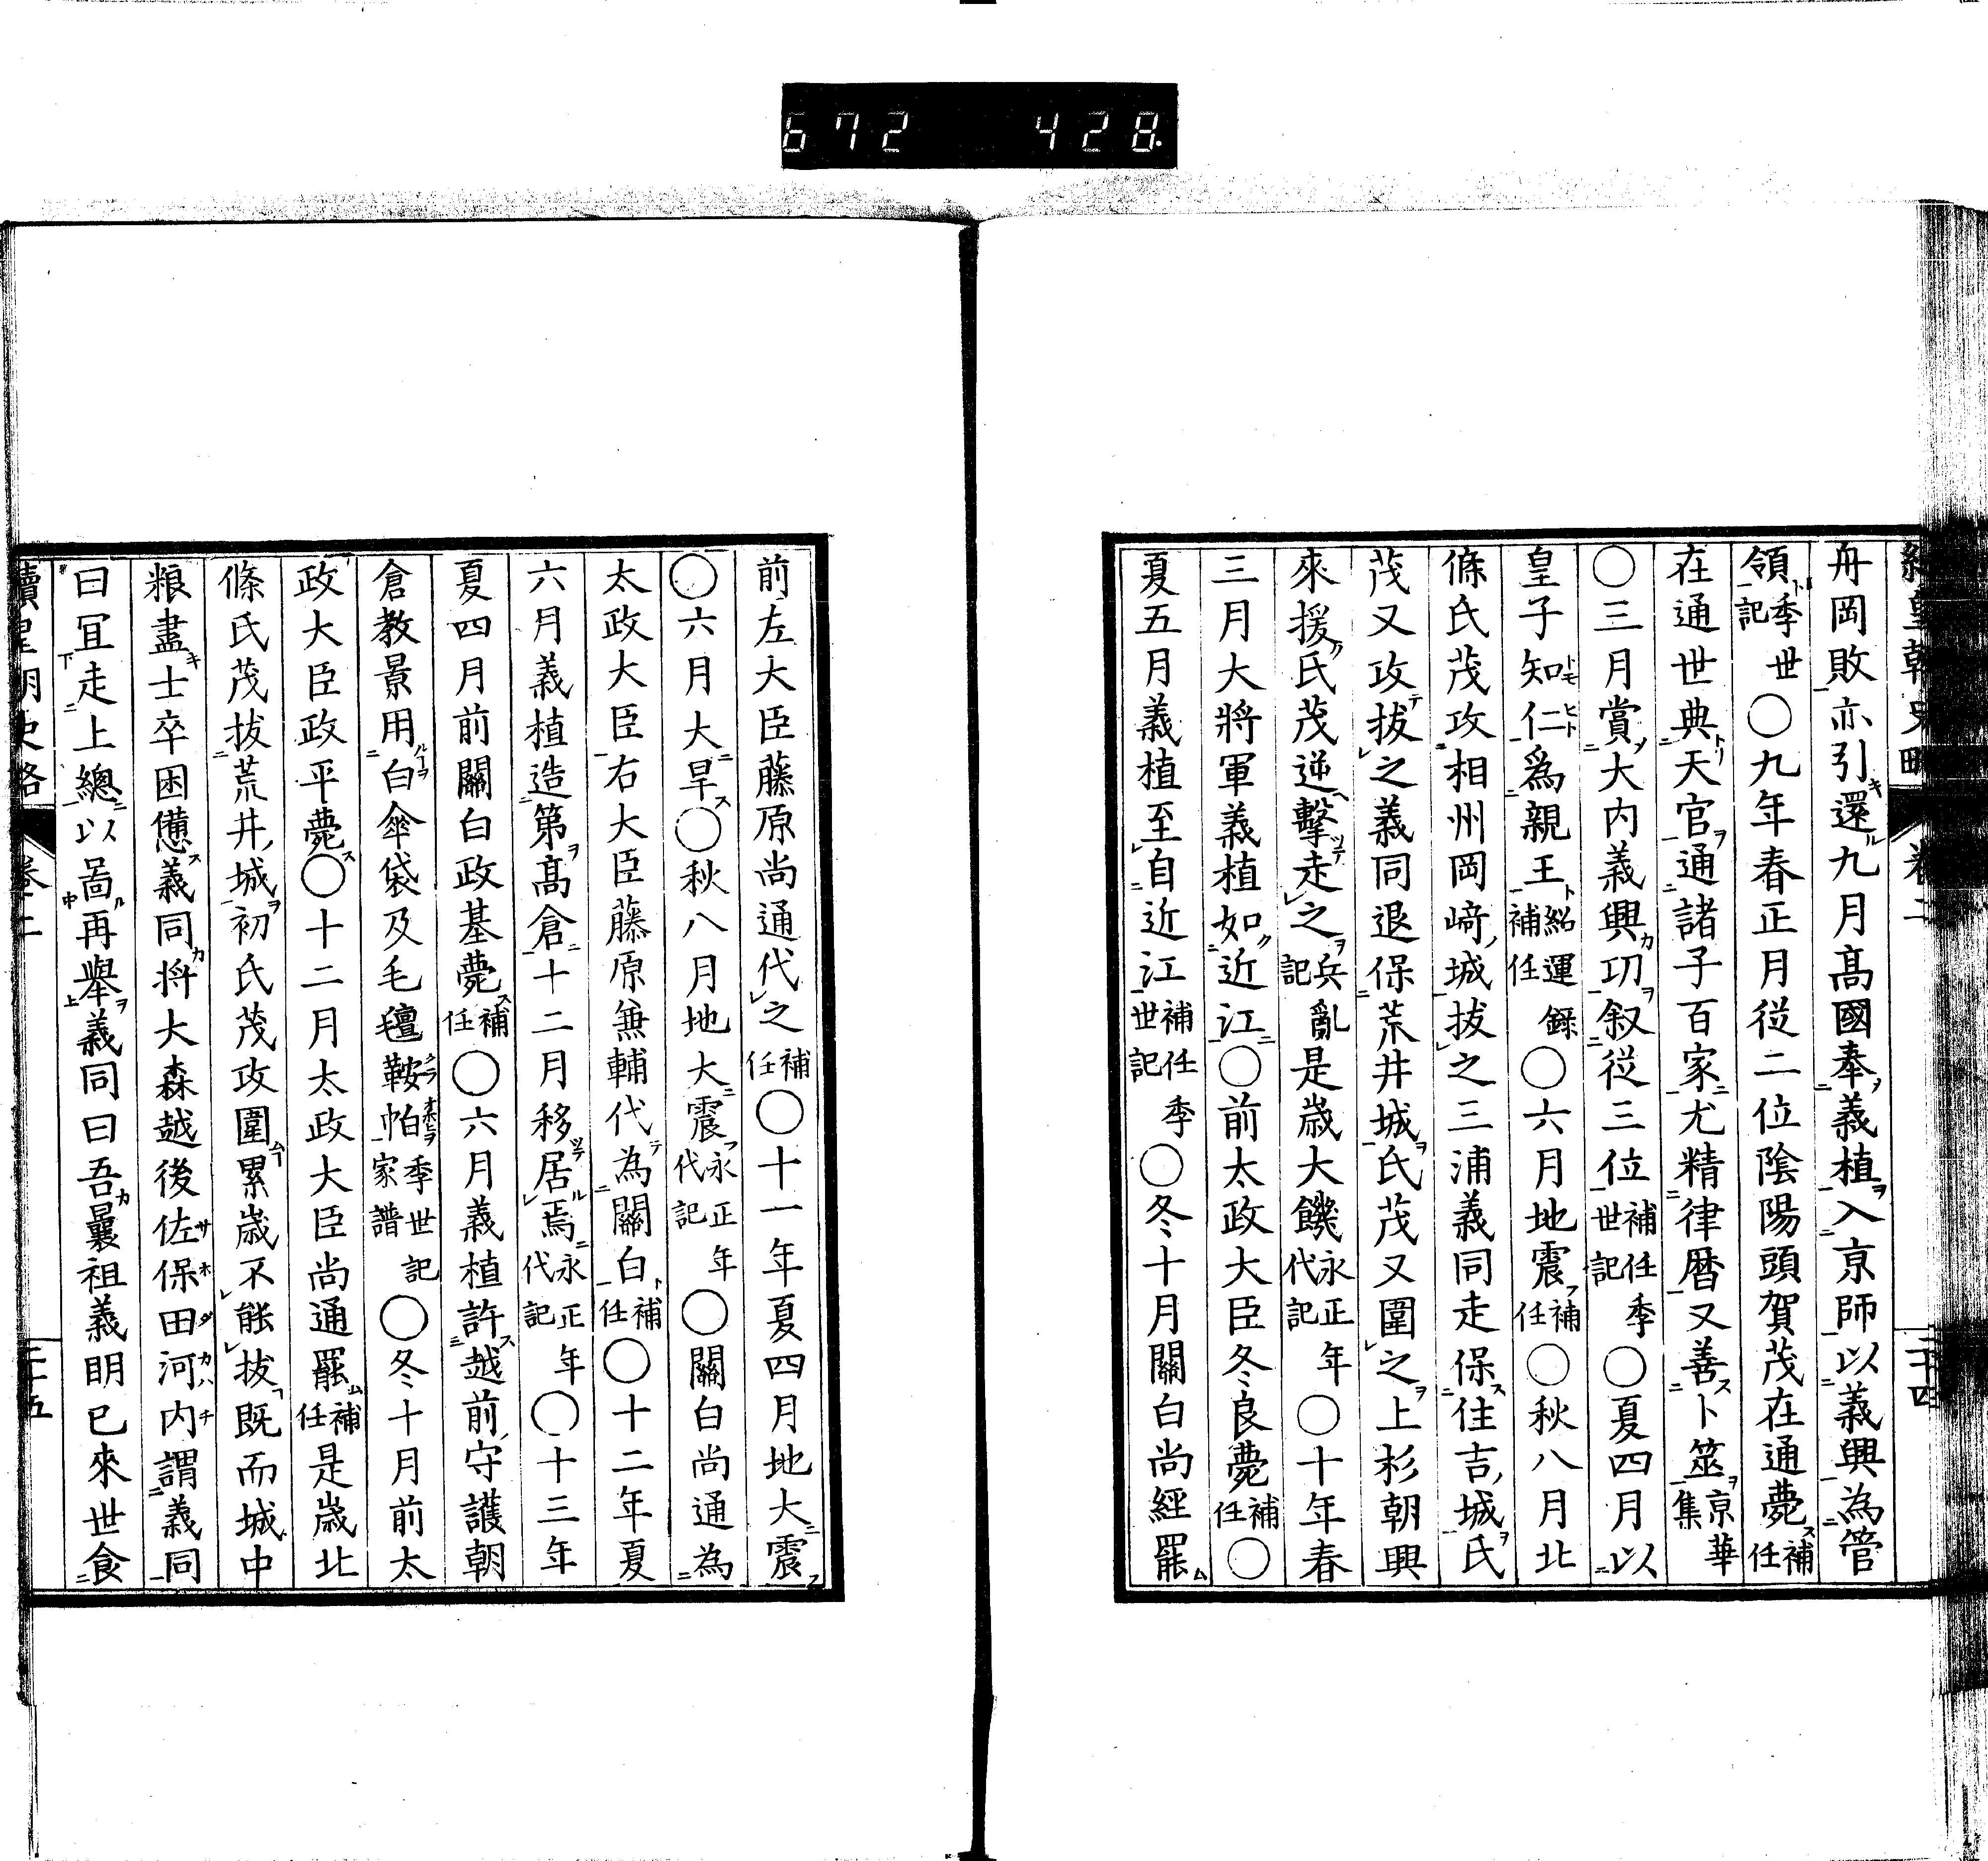 672 428
舟岡敗亦引還九月髙國奉義植入京師以義興為管
領季世記○九年春正月從二位陰陽頭賀茂在通薨補任
在通世典天官通諸子百家尤精律暦又善卜筮京華集
○三月賞大内義興功叙從三位補任季世記○夏四月以
皇子知仁爲親王紹運録補任○六月地震補任○秋八月北
條氏茂攻相州岡﨑城拔之三浦義同走保住吉城氏
茂又攻拔之義同退保荒井城氏茂又圍之上杉朝興
來援氏茂逆擊走之兵亂記是歲大饑永正年代記○十年春
三月大將軍義植如近江○前太政大臣冬良薨補任○
夏五月義植至自近江補任季世記○冬十月關白尚經罷
前左大臣藤原尚通代之補任○十一年夏四月地大震
○六月大旱○秋八月地大震永正年代記○關白尚通為
太政大臣右大臣藤原兼輔代為關白補任○十二年夏
六月義植造第髙倉十二月移居焉永正年代記○十三年
夏四月前關白政基薨補任○六月義植許越前守護朝
倉教景用白傘袋及毛氊鞍帕季世記家譜○冬十月前太
政大臣政平薨○十二月太政大臣尚通罷補任是歲北
條氏茂拔荒井城初氏茂攻圍累歲不能拔既而城中
粮盡士卒困憊義同將大森越後佐保田河内謂義同
曰冝走上總以啚再舉義同曰吾曩祖義明已來世食
續皇朝史略 卷二 二十五